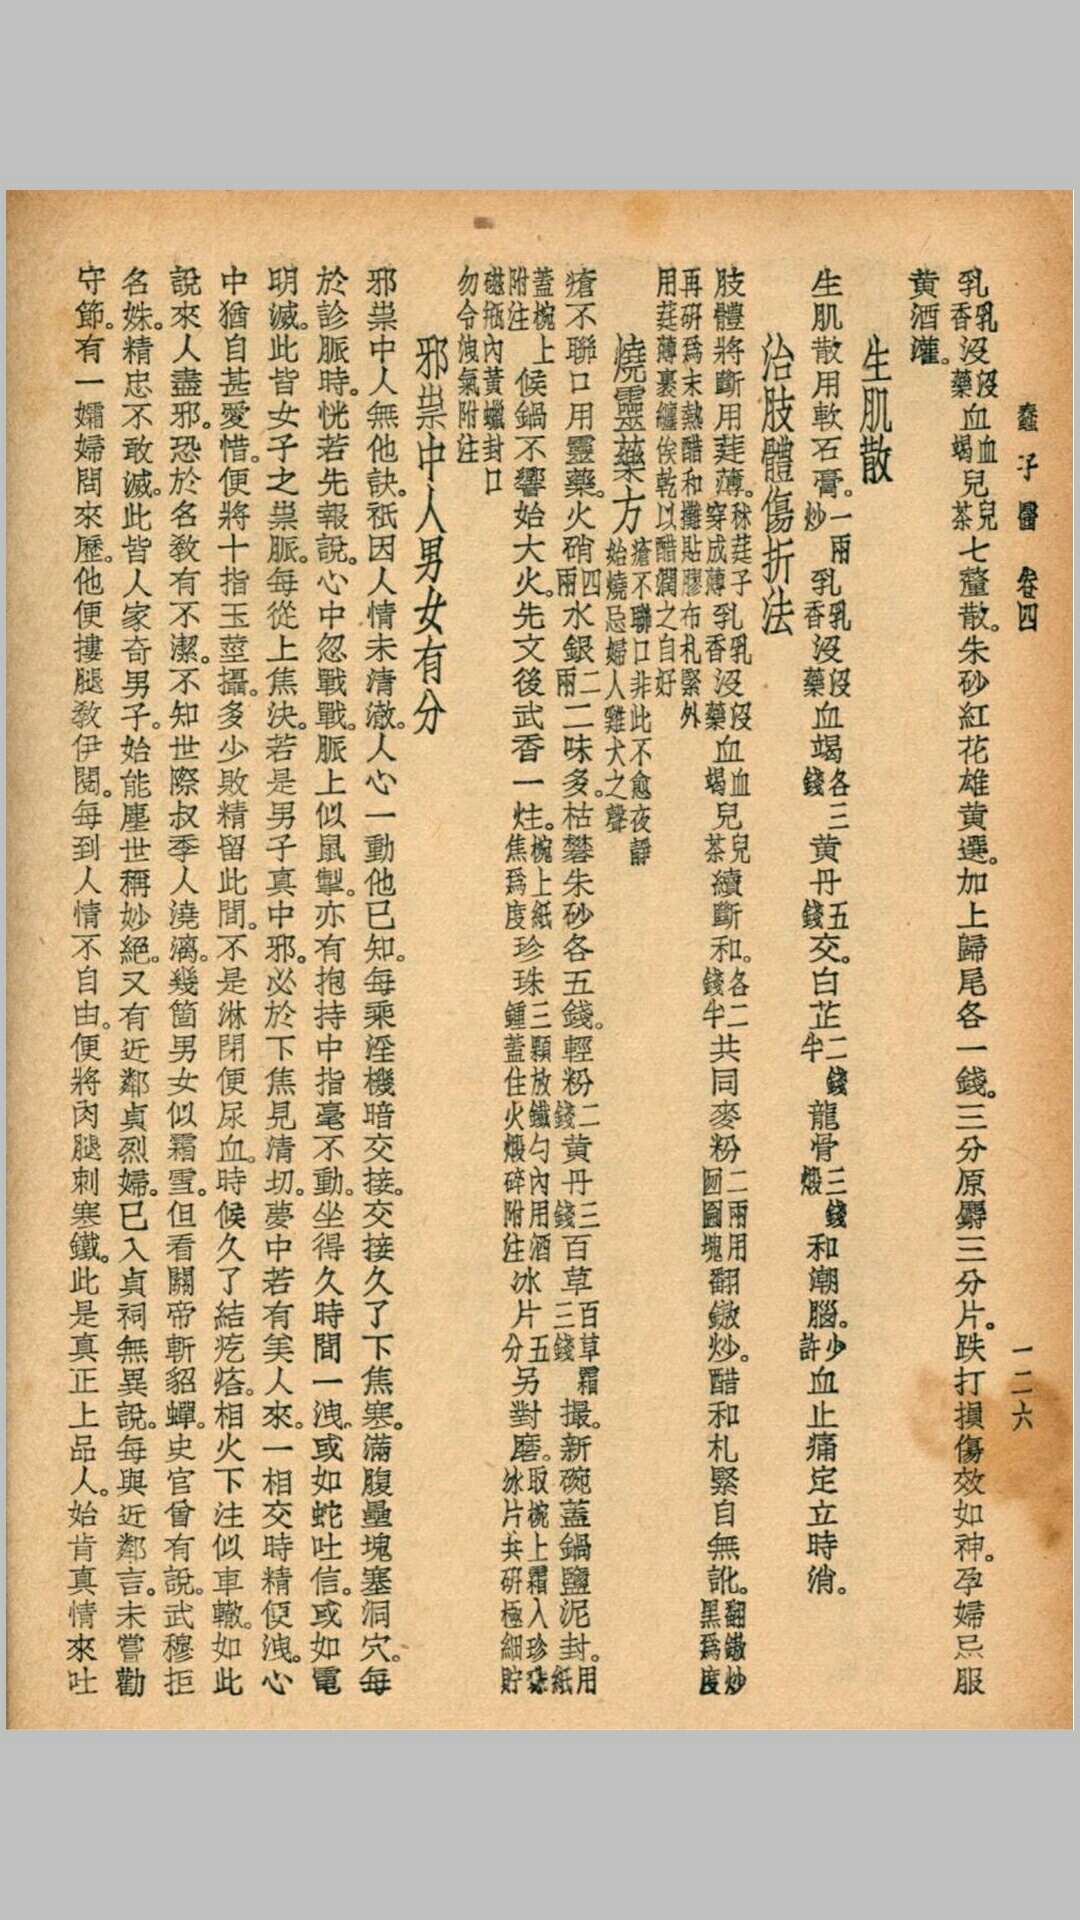 蠢子醫　卷四　一二六
乳乳香沒沒藥血血竭兒兒茶七釐散。朱砂紅花雄黄選。加上歸尾各一錢。三分原麝三分片。跌打損傷效如神。孕婦忌服
黄酒灌。
生肌散
生肌散用軟石膏。一兩炒乳乳香沒沒藥血竭各三錢黄丹五錢交。白芷二錢半龍骨三錢煅和潮腦。少許血止痛定立時消。
治肢體傷折法
肢體將斷用莛薄。秫莛子穿成薄乳乳香沒沒藥血血竭兒兒茶續斷和。各二錢半共同麥粉二兩用囫圇塊翻鏾炒。醋和札緊自無訛。翻鏾炒黑爲度
再研爲末熱醋和攤貼膠布札緊外
用莛薄裹纏俟乾以醋潤之自好
燒靈藥方瘡不聯口非此不愈夜靜始燒忌婦人雞犬之聲
瘡不聯口用靈藥。火硝四兩水銀二兩二味多。枯礬朱砂各五錢。輕粉二錢黄丹三錢百草百草霜三錢撮。新碗蓋鍋鹽泥封。用紙
蓋椀上附注候鍋不響始大火。先文後武香一炷。椀上紙焦爲度珍珠三顆放鐵勺內用酒鍾蓋住火煅碎附注冰片五分另對磨。取椀上霜入珍珠冰片共研極細貯
磁瓶內黄蠟封口
勿令洩氣附注
邪祟中人男女有分
邪祟中人無他訣。祇因人情未清澈。人心一動他已知。每乘淫機暗交接。交接久了下焦寒。滿腹壘塊塞洞穴。每
於診脈時。恍若先報說。心中忽戰戰。脈上似鼠掣。亦有抱持中指毫不動。坐得久時間一洩。或如蛇吐信。或如電
明滅。此皆女子之祟脈。每從上焦決。若是男子真中邪。必於下焦見清切。夢中若有美人來。一相交時精便洩。心
中猶自甚愛惜。便將十指玉莖攝。多少敗精留此間。不是淋閉便尿血。時候久了結疙瘩。相火下注似車轍。如此
說來人盡邪。恐於名教有不潔。不知世際叔季人澆漓。幾箇男女似霜雪。但看關帝斬貂蟬。史官曾有說。武穆拒
名姝。精忠不敢滅。此皆人家奇男子。始能塵世稱妙絕。又有近鄰貞烈婦。已入貞祠無異說。每與近鄰言。未嘗勸
守節。有一孀婦問來歷。他便摟腿敎伊閱。每到人情不自由。便將肉腿刺寒鐵。此是真正上品人。始肯真情來吐